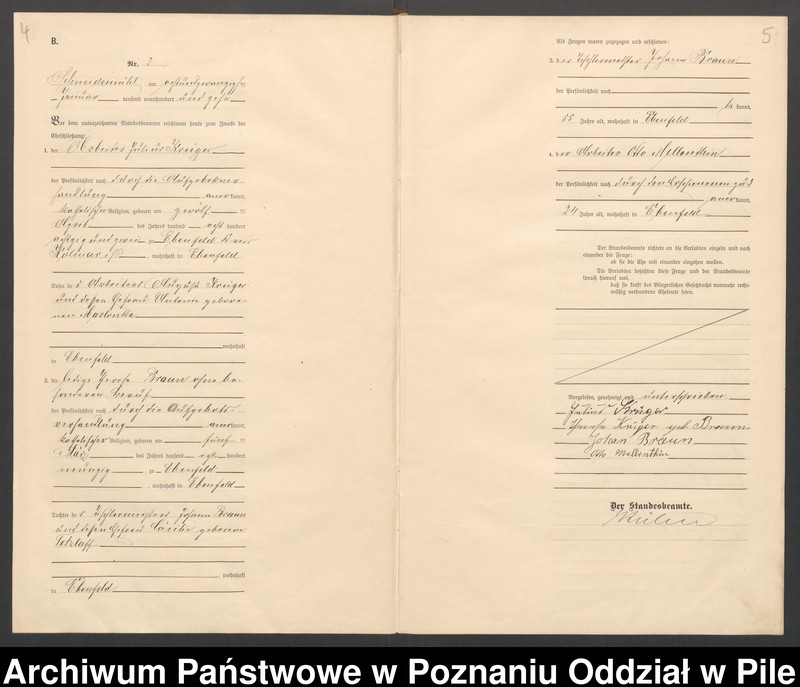 4
B.
Nr. 3
Schneidemühl am achtundzwanzigsten
Januar tausend neunhundert und zehn
Vor dem unterzeichneten Standesbeamten erschienen heute zum Zwecke der
Eheschließung:
1. der Arbeiter Julius Krüger
der Persönlichkeit nach durch die Aufgebotsver-
handlung anerkannt,
katholischer Religion, geboren am zwölften
April des Jahres tausend acht hundert
achtzig und zwei zu Ebenfeld Kreis
Kolmar i/P, wohnhaft in Ebenfeld
Sohn des Arbeiters August Krüger
und dessen Ehefrau Antonie gebore-
nen Maslonka
wohnhaft
in Ebenfeld
2. die ledige Therese Braun ohne be-
sonderen Beruf
der Persönlichkeit nach durch die Aufgebots-
verhandlung anerkannt,
katholischer Religion, geboren am fünften
März des Jahres tausend acht hundert
neunzig zu Ebenfeld
, wohnhaft in Ebenfeld
Tochter des Tischlermeisters Johann Braun
und dessen Ehefrau Cäcilie geborene
Tetzlaff
wohnhaft
in Ebenfeld
5
Als Zeugen waren zugezogen und erschienen:
3. der Tischlermeister Johann Braun
der Persönlichkeit nach
bekannt,
55 Jahre alt, wohnhaft in Ebenfeld
4. der Arbeiter Otto Mellenthin
der Persönlichkeit nach durch den Erschienenen zu 3
anerkannt,
24 Jahre alt, wohnhaft in Ebenfeld
Der Standesbeamte richtete an die Verlobten einzeln und nach
einander die Frage:
ob sie die Ehe mit einander eingehen wollen.
Die Verlobten bejahten diese Frage und der Standesbeamte
sprach hierauf aus,
daß sie kraft des Bürgerlichen Gesetzbuchs nunmehr recht-
mäßig verbundene Eheleute seien.
Vorgelesen, genehmigt und unterschrieben
Julius Krüger
Therese Krüger geb. Braun
Johan Braun
Otto Mellenthin
Der Standesbeamte.
Archiwum Państwowe w Poznaniu Oddział w Pile